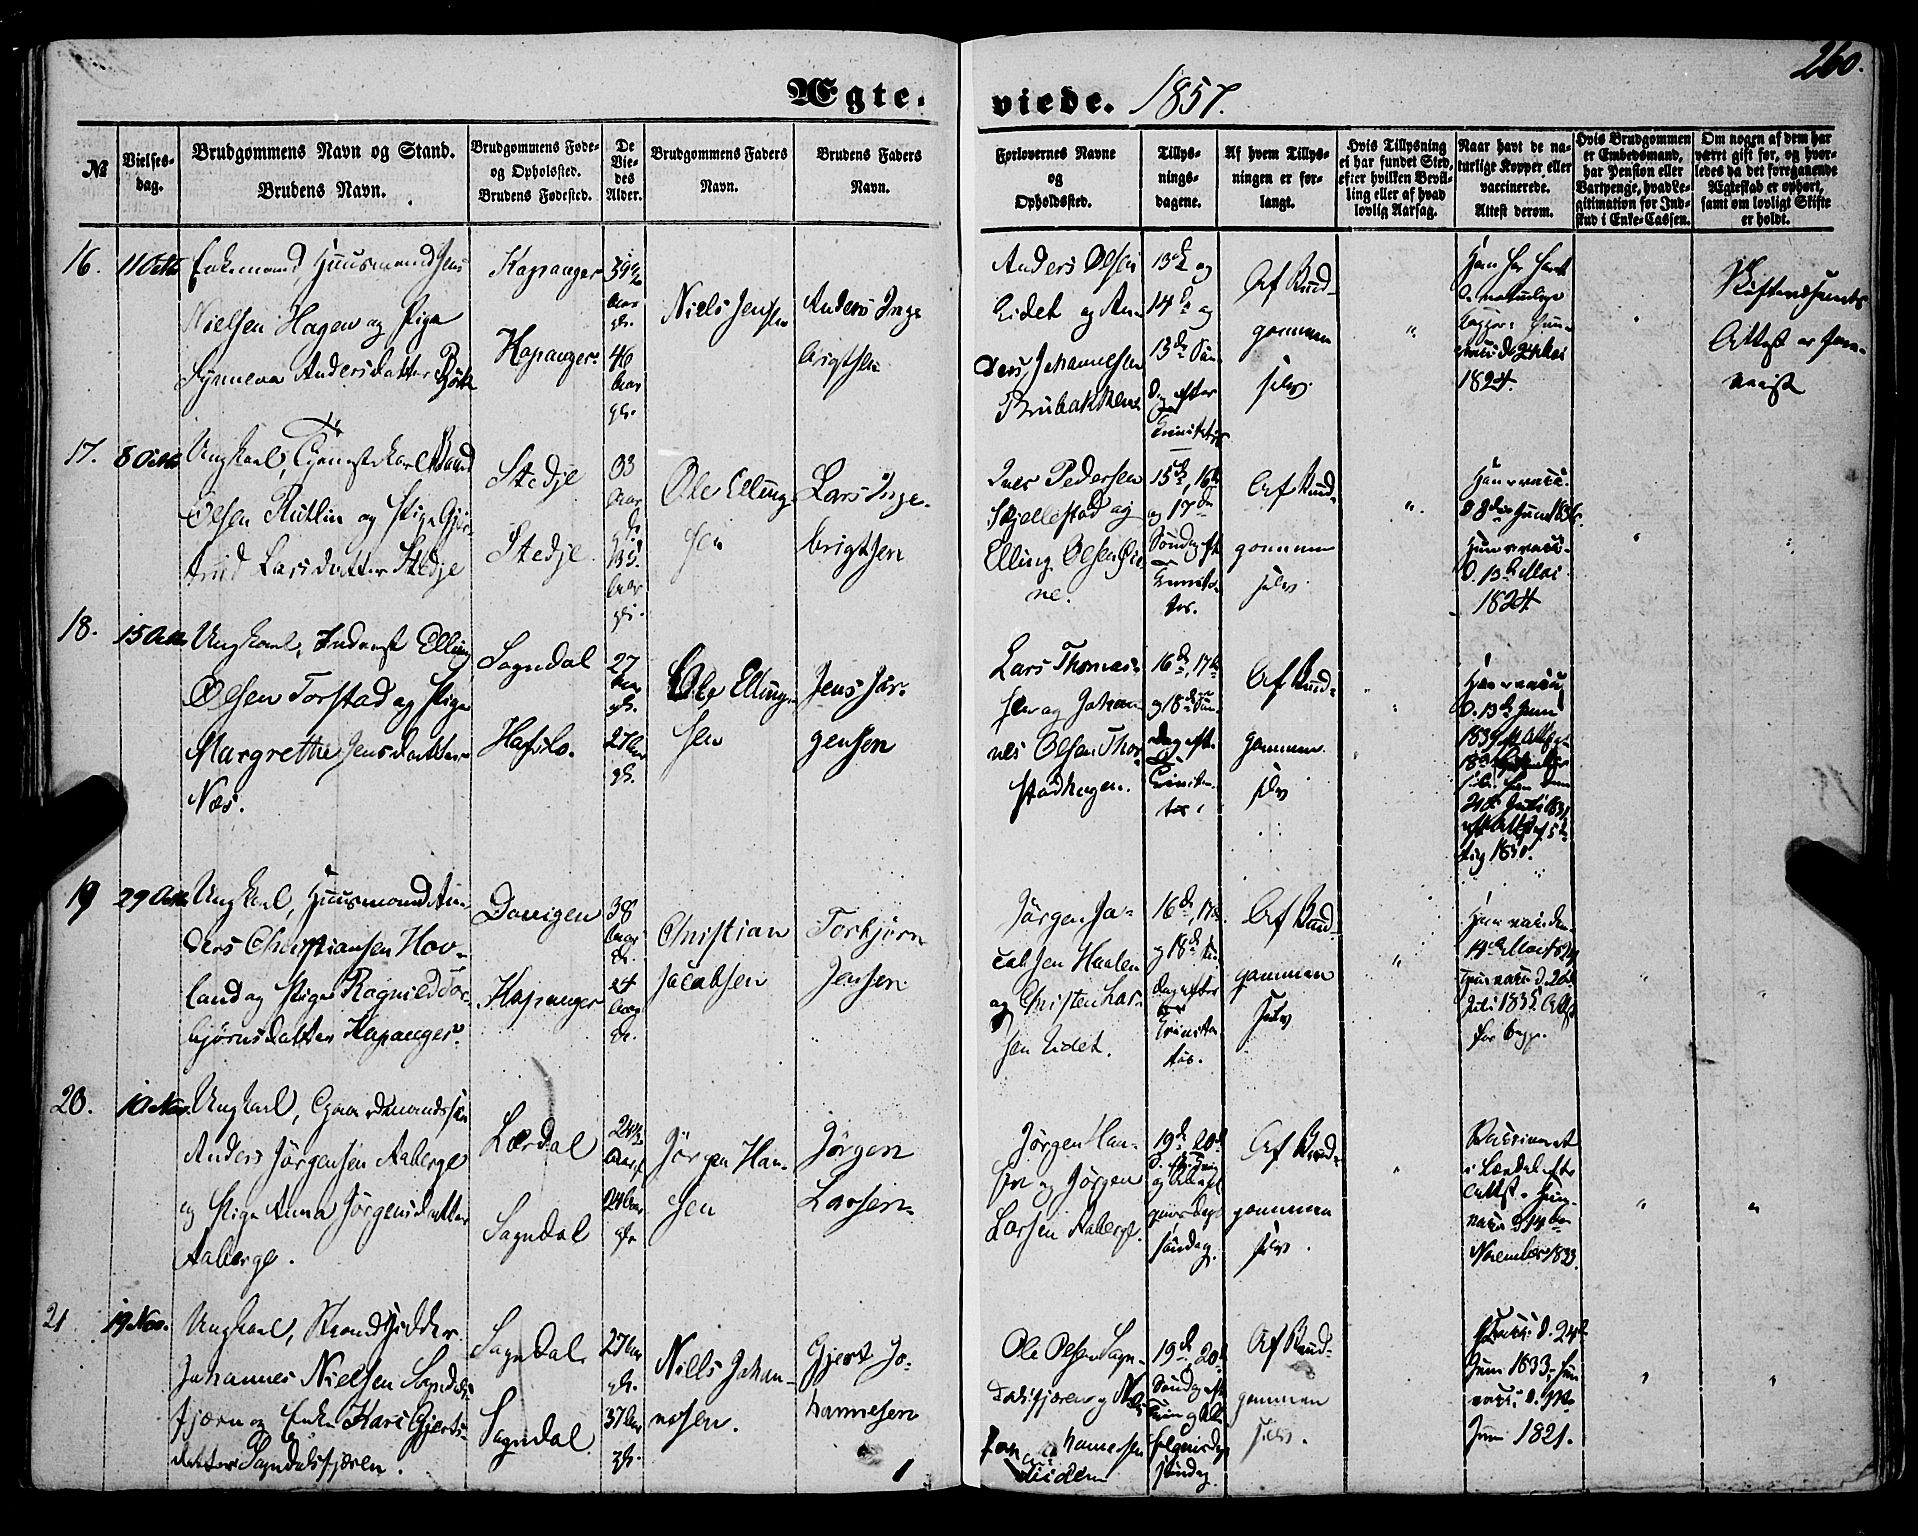 260.
Ægte.
viede. 1857.
№
Vielses-
dag.
Brudgommens Navn og Stand.
Brudens Navn.
Brudgommens Føde-
og Opholssted.
Brudens Fødested.
De
Vie-
des
Alder.
Brudgommens Faders
Navn.
Brudens Faders
Navn.
Forlovernes Navne
og
Opholdssted.
Tillys-
nings-
dagene.
Af hvem Tillys-
ningen er for-
langt.
Hvis Tillysning
ei har fundet Sted,
efter hvilken Bevil-
ling eller af hvad
lovlig Aarsag.
Naar havt de na-
turlige Kopper eller
vaccinerede.
Attest derom.
Hvis Brudgommen
er Embedsmand,
har Pension eller
Vartpenge, hvad Le-
gitimation for Ind-
skud i Enke-Cassen.
Om nogen af dem har
været gift før, og hvor-
ledes da det foregaaende
Ægteskab er ophørt,
samt om lovligt Skifte
er holdt.
16.
11 Octb
Enkemand, Huusmand Jens
Nielsen Hagen og Pige
Synneva Andersdatter
Kapanger
Kapanger.
39½
Aar
gl.
46
Aar
gl.
Niels Jensen
Anders Inge
brigtsen
Anders Olsen
Eidet og An-
ders Johannesen
Brubakken
13de og
14de og
13de Søn
dag efter
Trinitatis
Af Brud-
gommen
selv
"
Han har havt
de naturlige
Kopper; Hun
1824.
Skifterettens
Attest er fore-
viist
17.
8 Octb
Ungkarl, Tjenestekarl
Olsen Rutlin og Pige Gjer-
trud Larsdatter Stedje
Stedje
Stedje
33
Aar
gl.
35
Aar
gl.
Ole Elling
sen
Lars Inge-
brigtsen
Iver Pedersen
Skjellestad og
Elling Olsen
ne.
15de, 16de
og 17de
Søndag eft.
Trinita-
tis.
Af Brud-
gommen
selv
"
Han vacc.
Hun vacc.
d. 13de Mai
1824
18.
15 Octb
Ungkarl, Inderst Elling
Olsen Torstad og Pige
Margrethe Jensdatter
Næs.
Sogndal
Hafslo.
27
Aar
gl.
27 Aar
gl.
Ole Elling-
sen
Jens Jør-
gensen
Lars Thomas-
sen og Johan-
nes Olsen Thor-
stadhagen.
16de, 17de
og 18de Søn-
dag eft.
Trinita-
tis
Af Brud-
gommen
selv
Han vacc.
d. 13de Juni
1850.
19
29 Octb
Ungkarl, Huusmand An-
ders Christiansen Hov-
land og Pige Ragnild Tor-
bjørnsdatter Kapanger
Dovigen
Kapanger
38
Aar
gl.
24
Aar
gl.
Christian
Jacobsen
Torbjørn
Jensen
Jørgen Ja-
cobsen Haalen
og Christen Lar-
sen Eidet.
16de, 17de
og 18de Søn
dag efter
Trinita
tis.
Af Brud-
gommen
selv
"
for begge.
20.
10 Nov.
Ungkarl, Gaardmandssøn
Anders Jørgensen Aaberge
og Pige Anna Jørgensdatter
Aaberge.
Lærdal
Sogndal
24½
Aar gl.
24 Aar
gl.
Jørgen Han-
sen
Jørgen
Larsen
Jørgen Han-
sen og Jørgen
Larsen Aaberge.
19de, 20de
søndag.
Af Brud-
gommen
selv.
"
Vaccineret
i Lærdal efter
Attest. Hun
November 1833
21
19 Nov.
Ungkarl, Strandsidder
Johannes Nielsen Sogndals
fjæren og Enke Kari Gjerts-
datter Sogndalsfjæren.
Sogndal.
Sogndal
27 Aar
gl.
37 Aar
gl.
Niels Johan-
nesen.
Gjert Jo-
hannesen
Ole Olsen Sogn-
dalsfjæren og
hannesen
19de, 20de
Søndag eft.
søndag.
Af Brud-
gommen
selv.
vacc. d. 24de
Juni 1833. Hun
Juni 1821.